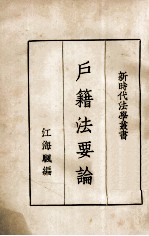 新時代法學叢書
戶籍法要論
江海颿編